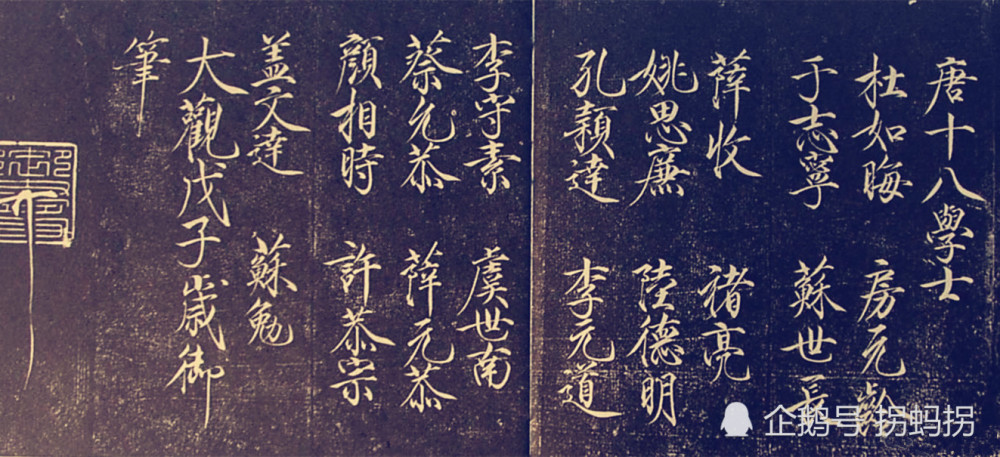 唐十八學士
杜如晦 房元齡
于志寧 蘇世長
薛收 褚亮
姚思廉 陸德明
孔穎達 李元道
李守素 虞世南
蔡允恭 薛元恭
顏相時 許恭宗
盖文達 蘇勉
大觀戊子歲御
筆
企鹅号 拐蚂拐